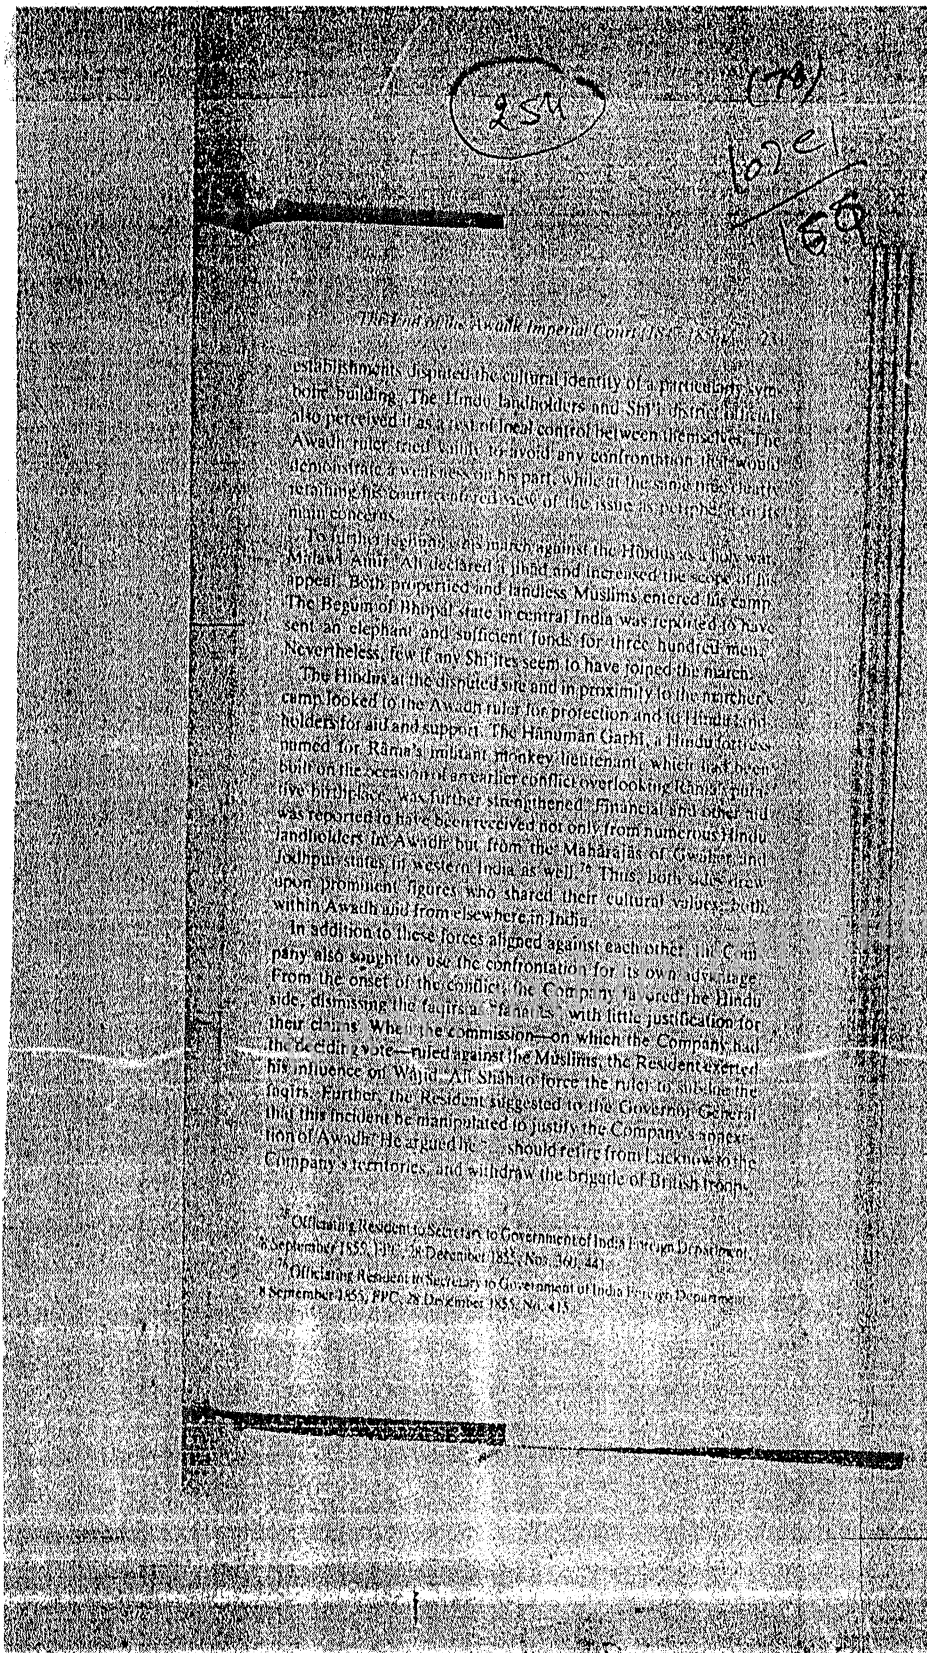 254
(78)
The End of the Awadh Imperial Court
establishments disputed the cultural identity of a particularly sym-
bolic building. The Hindu landholders and Shi'i district officials
also perceived it as a test of local control between themselves. The
Awadh ruler tried vainly to avoid any confrontation that would
demonstrate a weakness on his part, while at the same time clearly
retaining his court-centered view of the issue as peripheral to its
main concerns.
To further his march against the Hindus as a holy war,
Mālawī Amīr 'Alī declared a jihād and increased the scope of his
appeal. Both propertied and landless Muslims entered his camp.
The Begum of Bhopal state in central India was reported to have
sent an elephant and sufficient funds for three hundred men.
Nevertheless, few if any Shi'ites seem to have joined the march.
The Hindus at the disputed site and in proximity to the marcher's
camp looked to the Awadh ruler for protection and to Hindu land-
holders for aid and support. The Hanumān Garhī, a Hindu fortress
named for Rāma's militant monkey lieutenant, which had been
built on the occasion of an earlier conflict overlooking Rāma's puta-
tive birthplace, was further strengthened. Financial and other aid
was reported to have been received not only from numerous Hindu
landholders in Awadh but from the Mahārājās of Gwalior and
Jodhpur states in western India as well. Thus, both sides drew
upon prominent figures who shared their cultural values, both
within Awadh and from elsewhere in India.
In addition to these forces aligned against each other, the Com-
pany also sought to use the confrontation for its own advantage.
From the onset of the conflict, the Company favored the Hindu
side, dismissing the faqīrs as "fanatics" with little justification for
their claims. When the commission—on which the Company had
the deciding vote—ruled against the Muslims, the Resident exerted
his influence on Wājid 'Alī Shāh to force the ruler to subdue the
faqīrs. Further, the Resident suggested to the Governor General
that this incident be manipulated to justify the Company's annexa-
tion of Awadh. He argued he ". . . should retire from Lucknow to the
Company's territories, and withdraw the brigade of British troops,
Officiating Resident to Secretary to Government of India Foreign Department,
September 1855, FPC, 28 December 1855, Nos. 441.
Officiating Resident to Secretary to Government of India Foreign Department,
8 September 1855, FPC, 28 December 1855, No. 415.